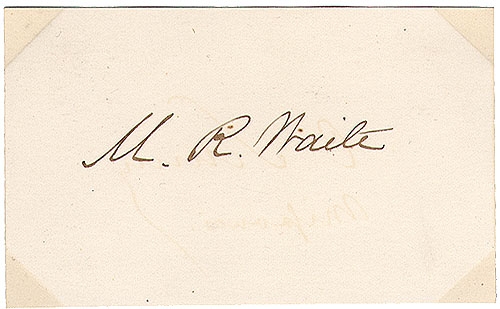 M. R. Waite